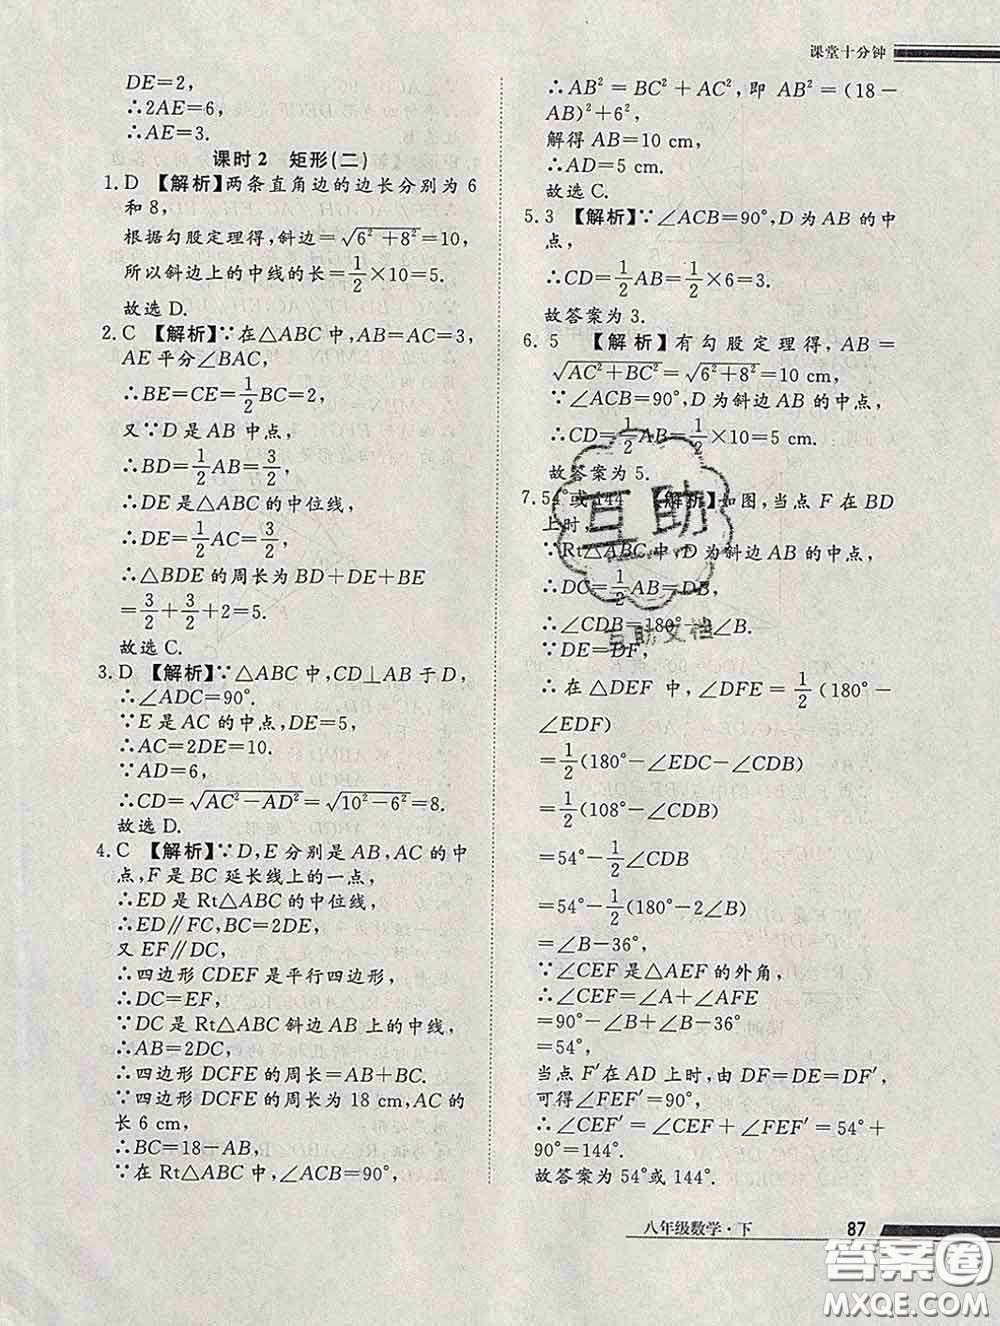 课堂十分钟
DE=2,
∴2AE=6,
∴AE=3.
课时2 矩形(二)
1. D 【解析】两条直角边的边长分别为 6
和 8,
根据勾股定理得,斜边=√(6²+8²)=10,
所以斜边上的中线的长=1/2×10=5.
故选 D.
2. C 【解析】∵在△ABC 中,AB=AC=3,
AE 平分∠BAC,
∴BE=CE=1/2BC=2,
又∵D 是 AB 中点,
∴BD=1/2AB=3/2,
∴DE 是△ABC 的中位线,
∴DE=1/2AC=3/2,
∴△BDE 的周长为 BD+DE+BE
=3/2+3/2+2=5.
故选 C.
3. D 【解析】∵△ABC 中,CD⊥AB 于 D,
∴∠ADC=90°.
∵E 是 AC 的中点,DE=5,
∴AC=2DE=10.
∵AD=6,
∴CD=√(AC²-AD²)=√(10²-6²)=8.
故选 D.
4. C 【解析】∵D,E 分别是 AB,AC 的中
点,F 是 BC 延长线上的一点,
∴ED 是 Rt△ABC 的中位线,
∴ED∥FC,BC=2DE,
又 EF∥DC,
∴四边形 CDEF 是平行四边形,
∴DC=EF,
∵DC 是 Rt△ABC 斜边 AB 上的中线,
∴AB=2DC,
∴四边形 DCFE 的周长=AB+BC.
∵四边形 DCFE 的周长为 18 cm,AC 的
长 6 cm,
∴BC=18-AB,
∵在 Rt△ABC 中,∠ACB=90°,
∴AB²=BC²+AC²,即 AB²=(18-
AB)²+6²,
解得 AB=10 cm,
∴AD=5 cm.
故选 C.
5. 3 【解析】∵∠ACB=90°,D 为 AB 的中
点,
∴CD=1/2AB=1/2×6=3.
故答案为 3.
6. 5 【解析】有勾股定理得,AB=
√(AC²+BC²)=√(6²+8²)=10 cm,
∵∠ACB=90°,D 为斜边 AB 的中点,
∴CD=1/2AB=1/2×10=5 cm.
故答案为 5.
7. 54°或144° 【解析】如图,当点 F 在 BD
上时,
∵Rt△ABC 中,D 为斜边 AB 的中点,
∴DC=1/2AB=DB,
∴∠CDB=180°-2∠B.
∵DE=DF,
∴在△DEF 中,∠DFE=1/2(180°-
∠EDF)
=1/2(180°-∠EDC-∠CDB)
=1/2(108°-∠CDB)
=54°-1/2∠CDB
=54°-1/2(180°-2∠B)
=∠B-36°,
∵∠CEF 是△AEF 的外角,
∴∠CEF=∠A+∠AFE
=90°-∠B+∠B-36°
=54°;
当点 F′在 AD 上时,由 DF=DE=DF′,
可得∠FEF′=90°,
∴∠CEF′=∠CEF+∠FEF′=54°+
90°=144°.
故答案为 54°或 144°.
互助
互助文档
八年级数学·下 87
答案圈
MXQE.COM